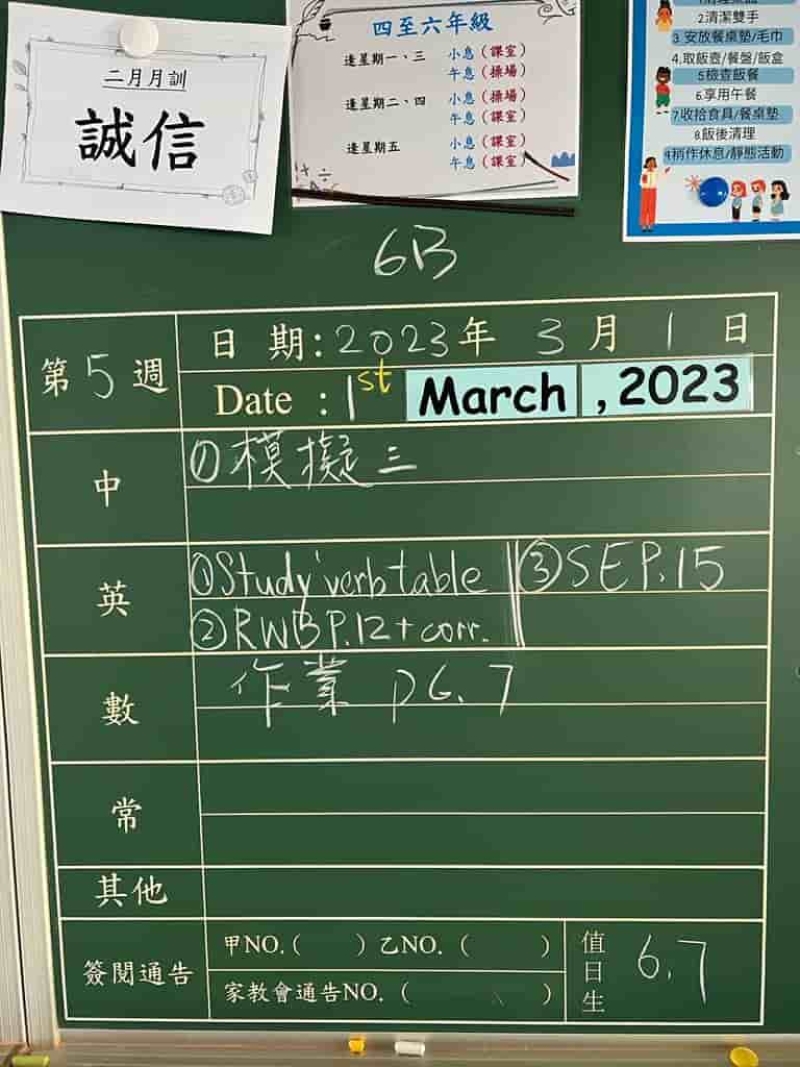 二月月訓
誠信
四至六年級
逢星期一、三 小息（課室）
午息（操場）
逢星期二、四 小息（操場）
午息（課室）
逢星期五 小息（課室）
午息（課室）
2清潔雙手
3.安放餐桌墊/毛巾
4.取飯壼/餐盤/飯盒
5檢查飯餐
6.享用午餐
7.收拾食具/餐桌墊
8.飯後清理
9稍作休息/靜態活動
6B
第5週
日期:2023年3月1日
Date : 1st March , 2023
中
①模擬三
英
①Study verb table
②RWB P.12 + corr.
③SE P.15
數
作業 p6.7
常
其他
簽閱通告
甲NO.( ) 乙NO.( )
家教會通告NO.( )
值日生
6.7